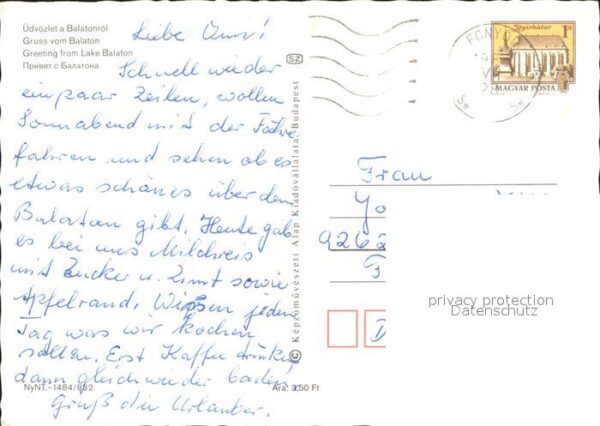 Üdvözlet a Balatonról
Gruss vom Balaton
Greeting from Lake Balaton
Привет с Балатона
Liebe Omi!
Schnell wieder
ein paar Zeilen, wollen
Sonnabend mit der Fähre
fahren und sehen ob es
etwas schönes über dem
Balaton gibt. Heute gab
es bei uns Milchreis
mit Zucker u. Zimt sowie
Apfelrand. Wissen jeden
Tag was wir kochen
sollen. Erst Kaffee trinken
dann gleich wieder baden.
Gruß die Urlauber.
NyNT.-1484/882.
Ára: 3,50 Ft
SZ
© Képzőművészeti Alap Kiadóvállalata, Budapest
FONYÓD
Nyírbátor
1 Ft
MAGYAR POSTA
Frau
Yo
9262
F
privacy protection
Datenschutz